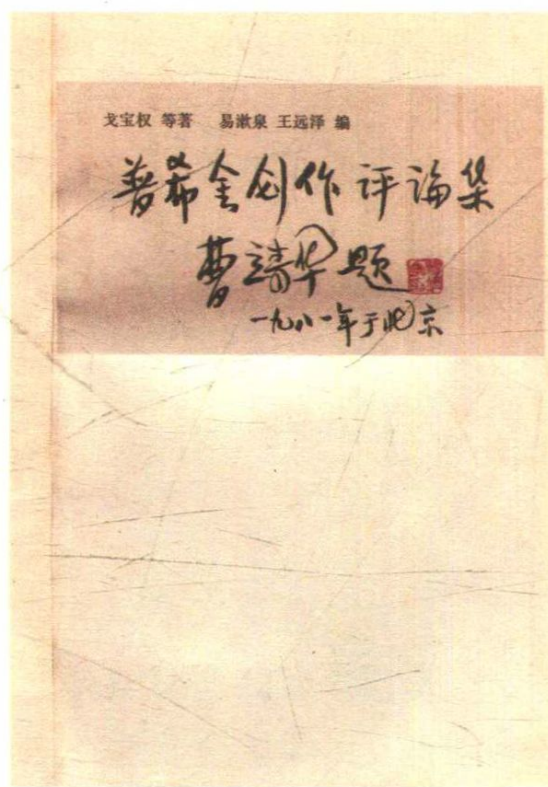 戈宝权 等著 易漱泉 王远泽 编
普希金创作评论集
曹靖华 题
一九八一年于北京